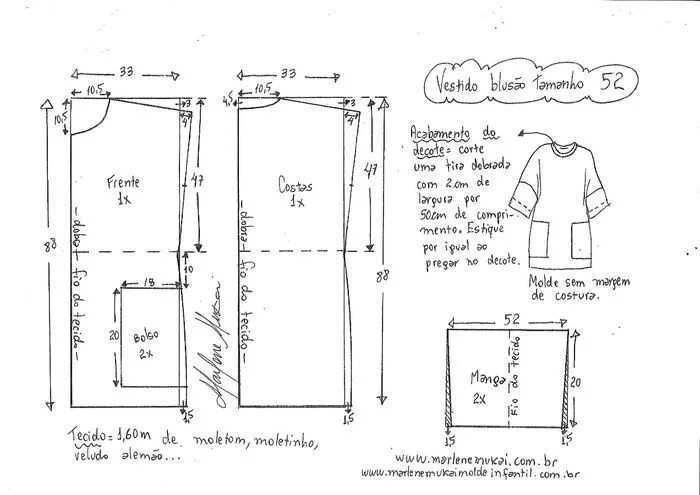 Vestido blusão tamanho 52
33
10,5
10,5
3
4
47
88
Frente
1x
- dobra - fio do tecido -
10
18
20
Bolso
2x
1,5
Marlene Mukai
33
10,5
4,5
3
4
47
88
Costas
1x
- dobra - fio do tecido -
1,5
Acabamento do
decote = corte
uma tira dobrada
com 2 cm de
largura por
50cm de compri-
mento. Estique
por igual ao
pregar no decote.
Molde sem margem
de costura.
52
Manga
2x
Fio do tecido
20
1,5
1,5
Tecido = 1,60m de moletom, moletinho,
veludo alemão...
www.marlenemukai.com.br
www.marlenemukaimoldeinfantil.com.br